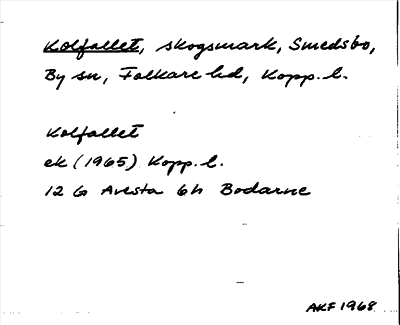 Kolfallet, skogsmark, Smedsbo,
By sn, Folkare hd, Kopp. l.
Kolfallet
ek (1965) Kopp. l.
12 G Avesta 6h Bodarne
AKF 1968